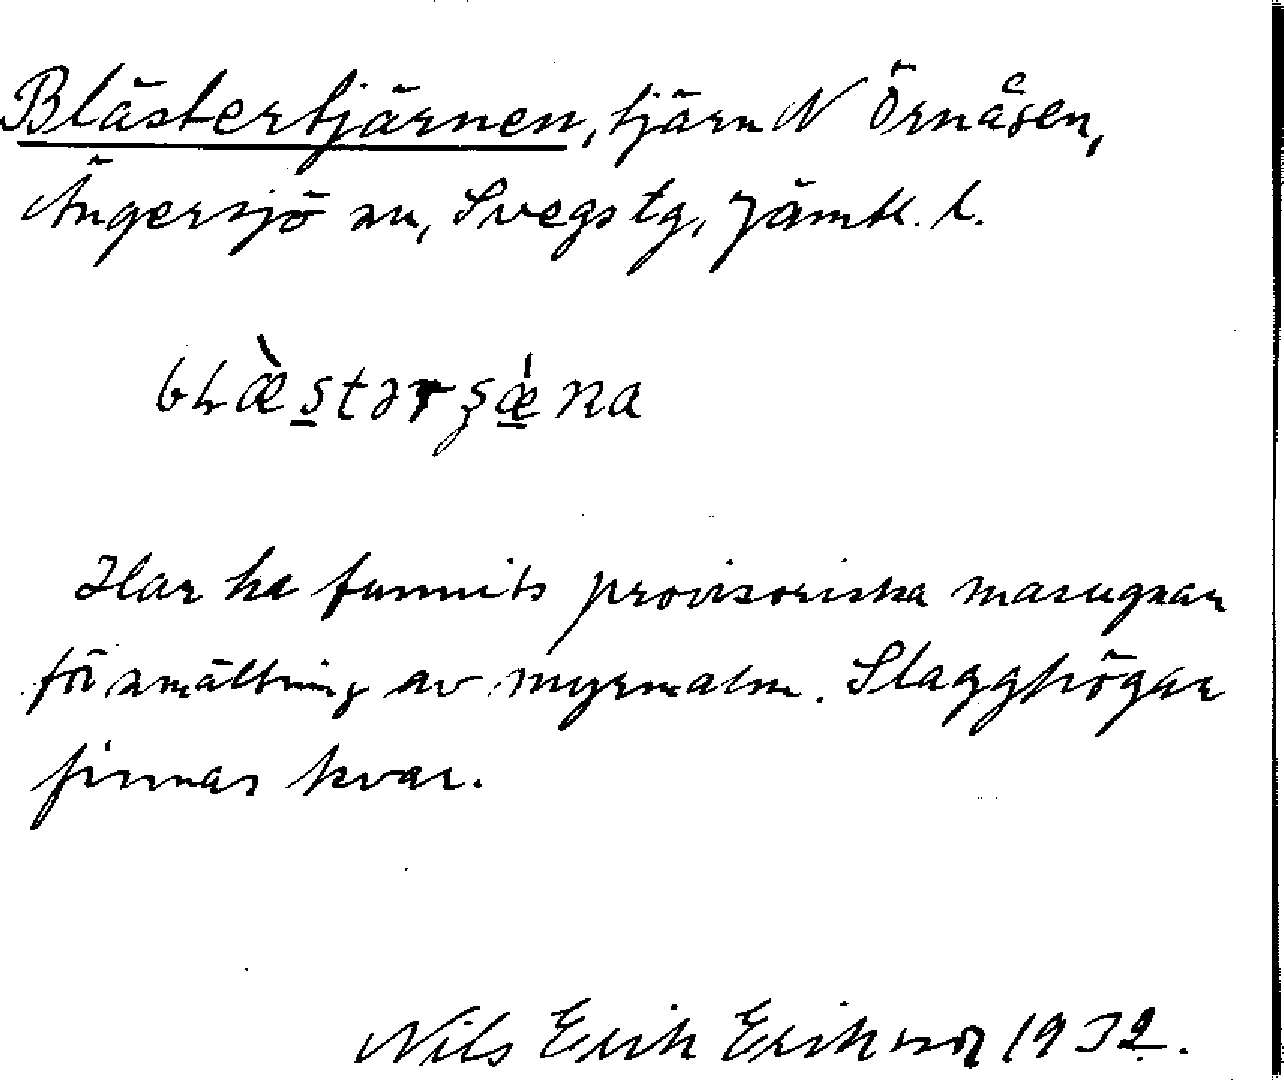 Blästertjärnen, tjärn N Örnåsen,
Ängersjö sn, Svegs tg, Jämtl. l.
Här ha funnits provisoriska masugnar
för smältning av myrmalm. Slagghögar
finnas kvar.
Nils Erik Eriksson 1932.